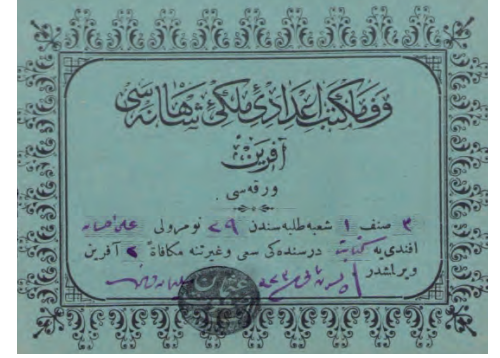 وفا مكتب اعدادئ ملكئ شاهانه‌سى
آفرين
ورقه‌سى
٣ صنف ١ شعبه طلبه‌سندن ٢٩ نومرولى على احسان
افندى‌يه كتابت درسنده‌كى سعى وغيرتنه مكافاةً ٢ آفرين
ويرلمشدر